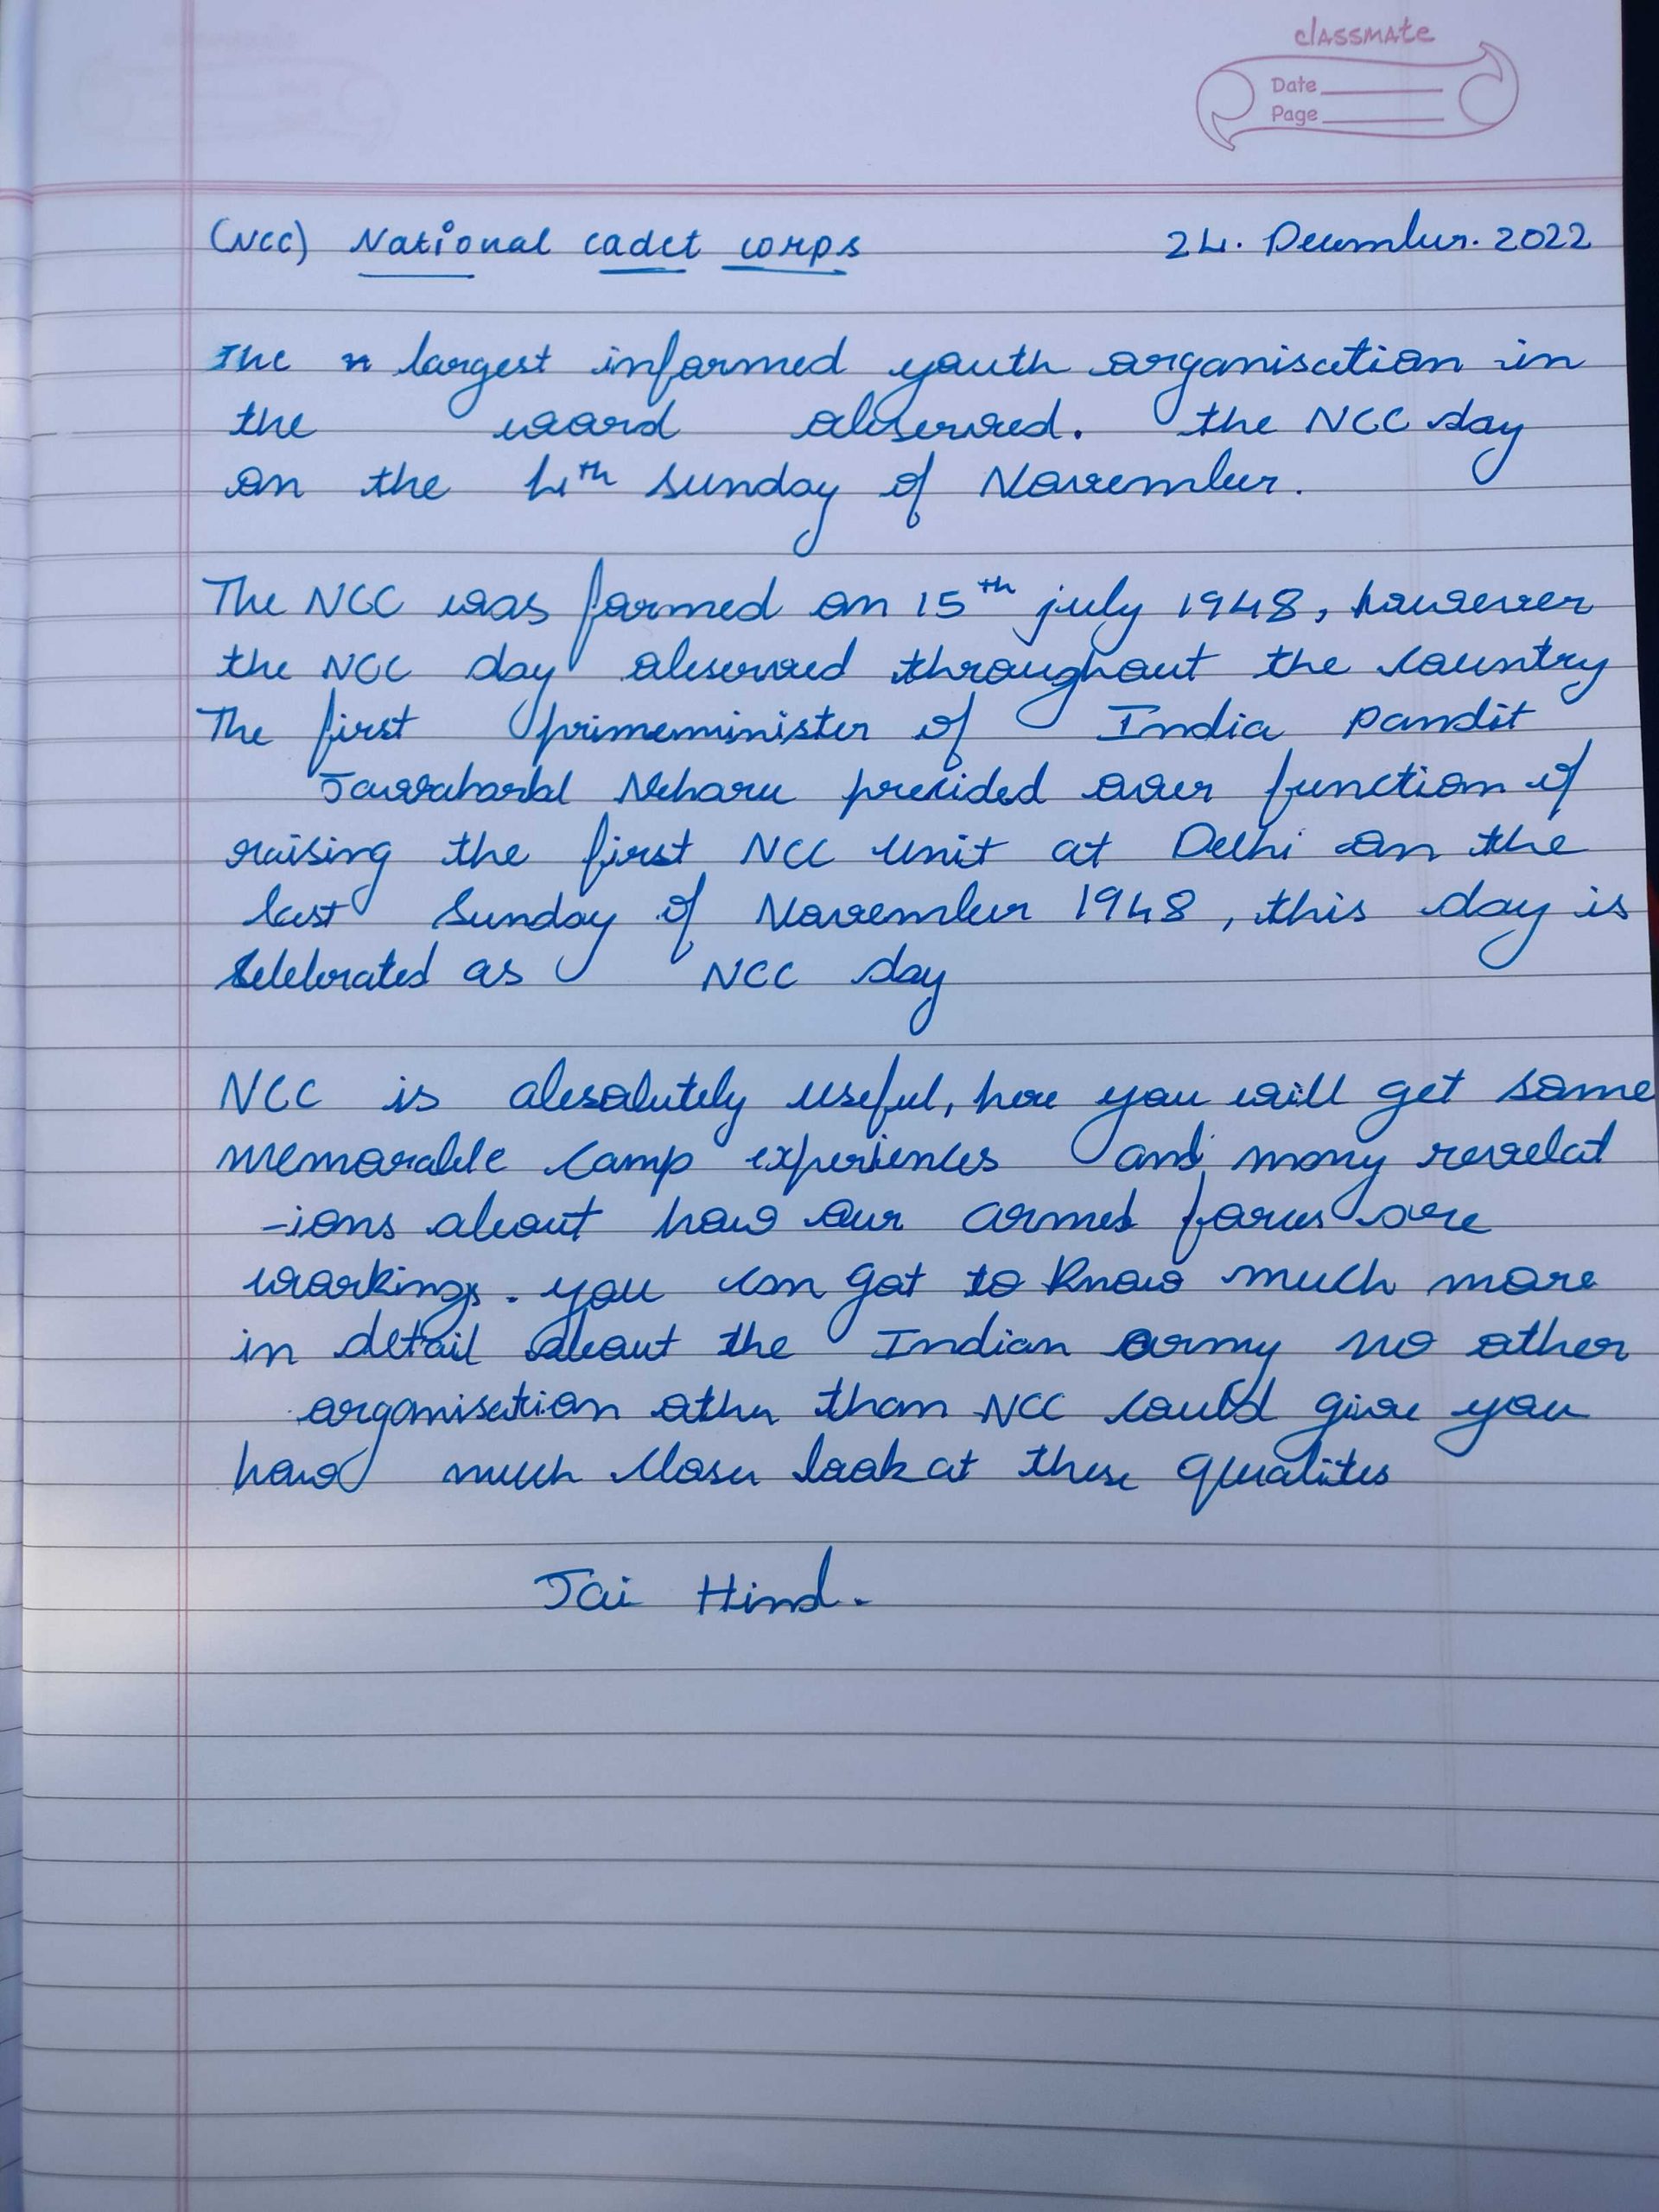 classmate
Date
Page
(NCC) National cadet corps 24. December. 2022
The largest informed youth organisation in
the woord observed. the NCC day
on the 4th Sunday of November.
The NCC was formed on 15th july 1948, however
the NCC day observed throughout the country
The first primeminister of India Pandit
Jawaharlal Neharu precided over function of
raising the first NCC Unit at Delhi on the
last Sunday of November 1948, this day is
Selebrated as NCC day
NCC is absolutely useful, here you will get some
memorable camp experiences and many revelat
-ions about how our armed forces are
working. you can got to know much more
in detail about the Indian army no other
organisation other than NCC could give you
how much closer look at these qualites
Jai Hind.